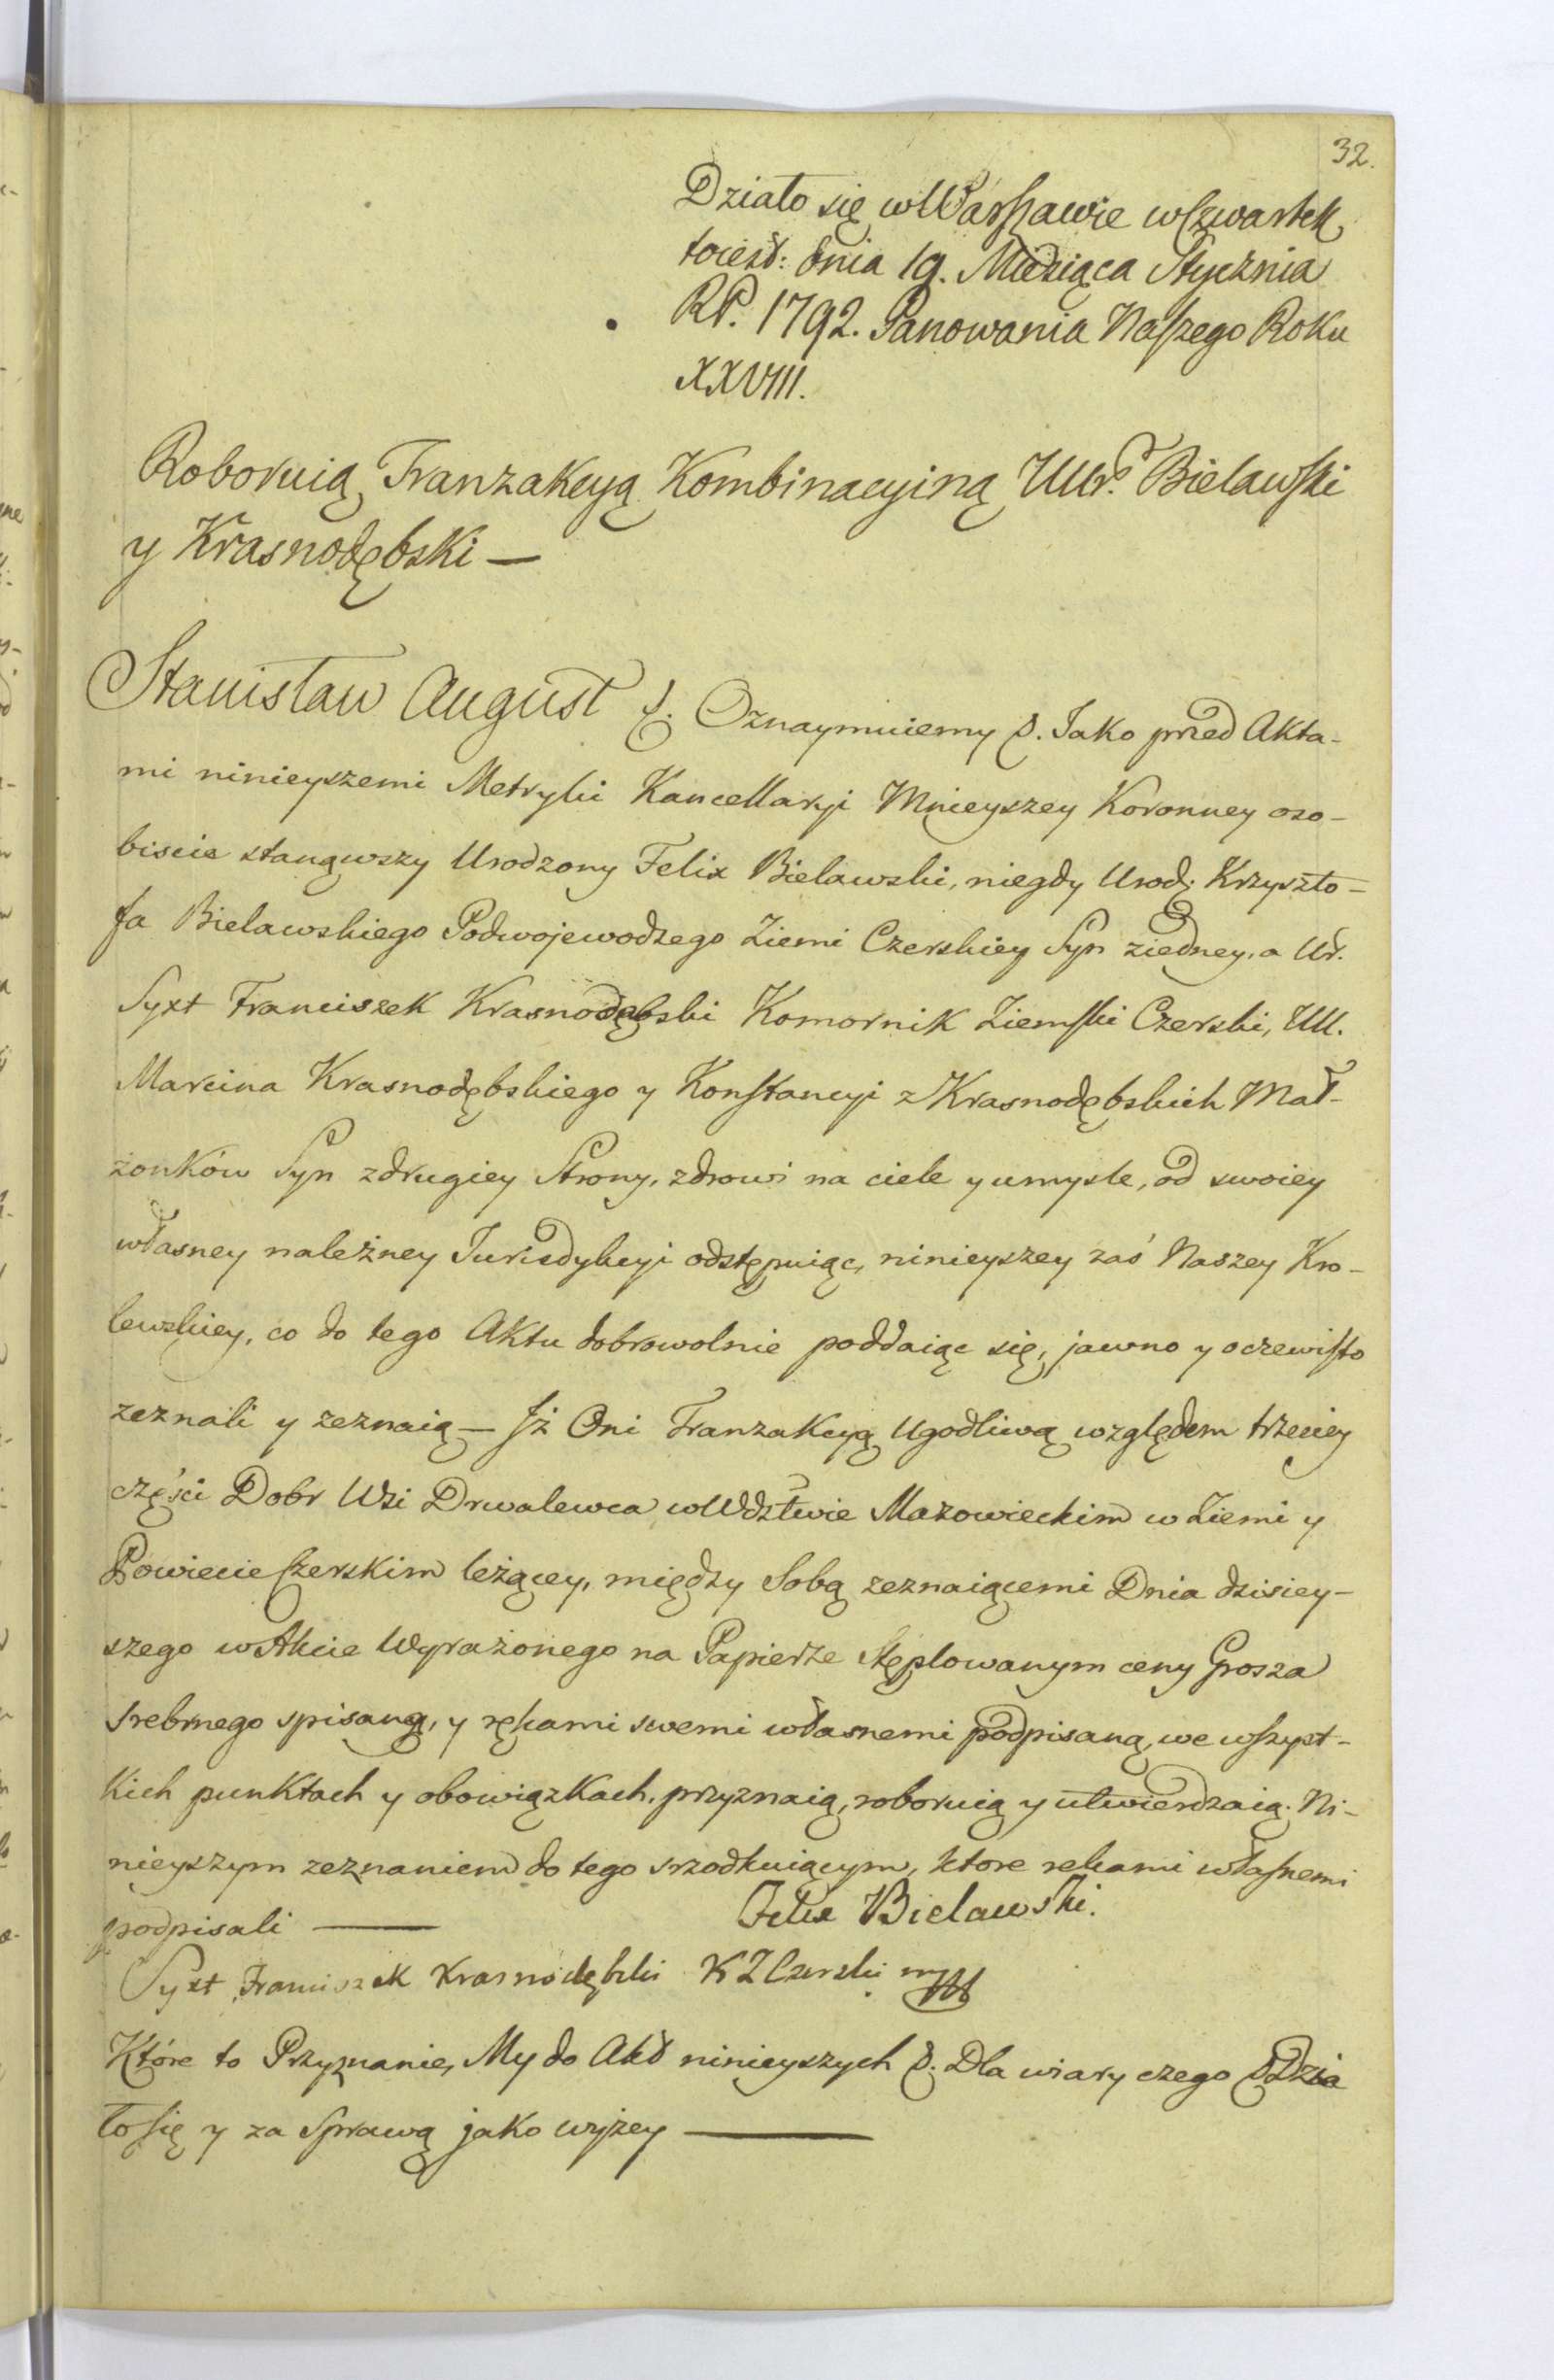 32.
Działo się w Warszawie w Czwartek
toiest: dnia 19. Miesiąca Stycznia
RP. 1792. Panowania Naszego Roku
XXVIII.
Roboruią Tranzakcyą Kombinacyiną UUr. Bielawski
y Krasnodębski —
Stanisław August &. Oznaymuiemy &. Jako przed Akta-
mi ninieyszemi Metryki Kancellaryi Mnieyszey Koronney oso-
biscie stanąwszy Urodzony Felix Bielawski, niegdy Urod: Krzyszto-
fa Bielawskiego Podwojewodzego Ziemi Czerskiey Syn ziedney, a Ur.
Syxt Franciszek Krasnodębski Komornik Ziemski Czerski, UU.
Marcina Krasnodębskiego y Konstancyi z Krasnodębskich Mał-
żonków Syn zdrugiey Strony, zdrowi na ciele y umysle, od swoiey
własney należney Jurisdykcyi odstępuiąc, ninieyszey zaś Naszey Kro-
lewskiey, co do tego Aktu dobrowolnie poddaiąc się, jawno y oczewisto
zeznali y zeznaią — Iż Oni Tranzakcyą Ugodliwą względem trzeciey
części Dobr Wsi Drwalewca w Wdztwie Mazowieckim w Ziemi y
Powiecie Czerskim leżącey, między Sobą zeznaiącemi Dnia dzisiey-
szego w Akcie Wyrażonego na Papierze Stęplowanym ceny Grosza
srebrnego spisaną, y rękami swemi własnemi podpisaną, we wszyst-
kich punktach y obowiązkach, przyznaią, roboruią y utwierdzaią. Ni-
nieyszym zeznaniem do tego srzodkuiącym, ktore rekami własnemi
podpisali —
Felix Bielawski.
Syxt Franciszek Krasnodębski K Z Czerski mp
Które to Przyznanie, My do Akt ninieyszych &. Dla wiary czego & Dzia
ło się y za Sprawą jako wyżey —